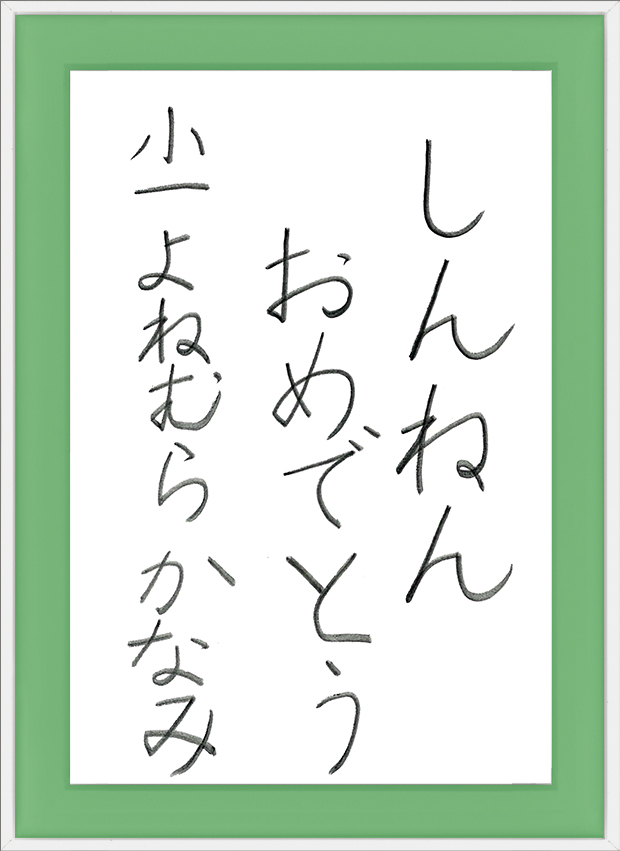 しんねん
おめでとう
小一 よねむら かなみ